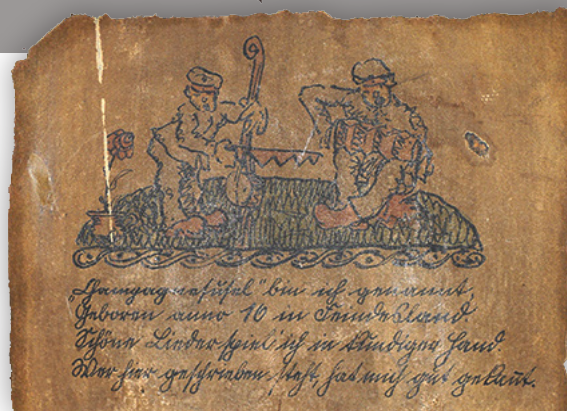 „Champagnefusel“ bin ich genannt,
Geboren anno 16 in Feindesland
Schöne Lieder spiel ich in kundiger Hand.
Wer hier geschrieben steht, hat mich gut gekan̄t.